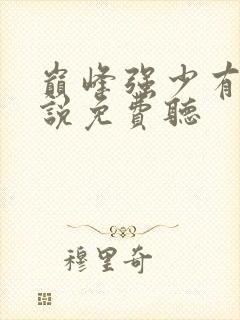 巔峰强少有
說免費聽
穆里奇